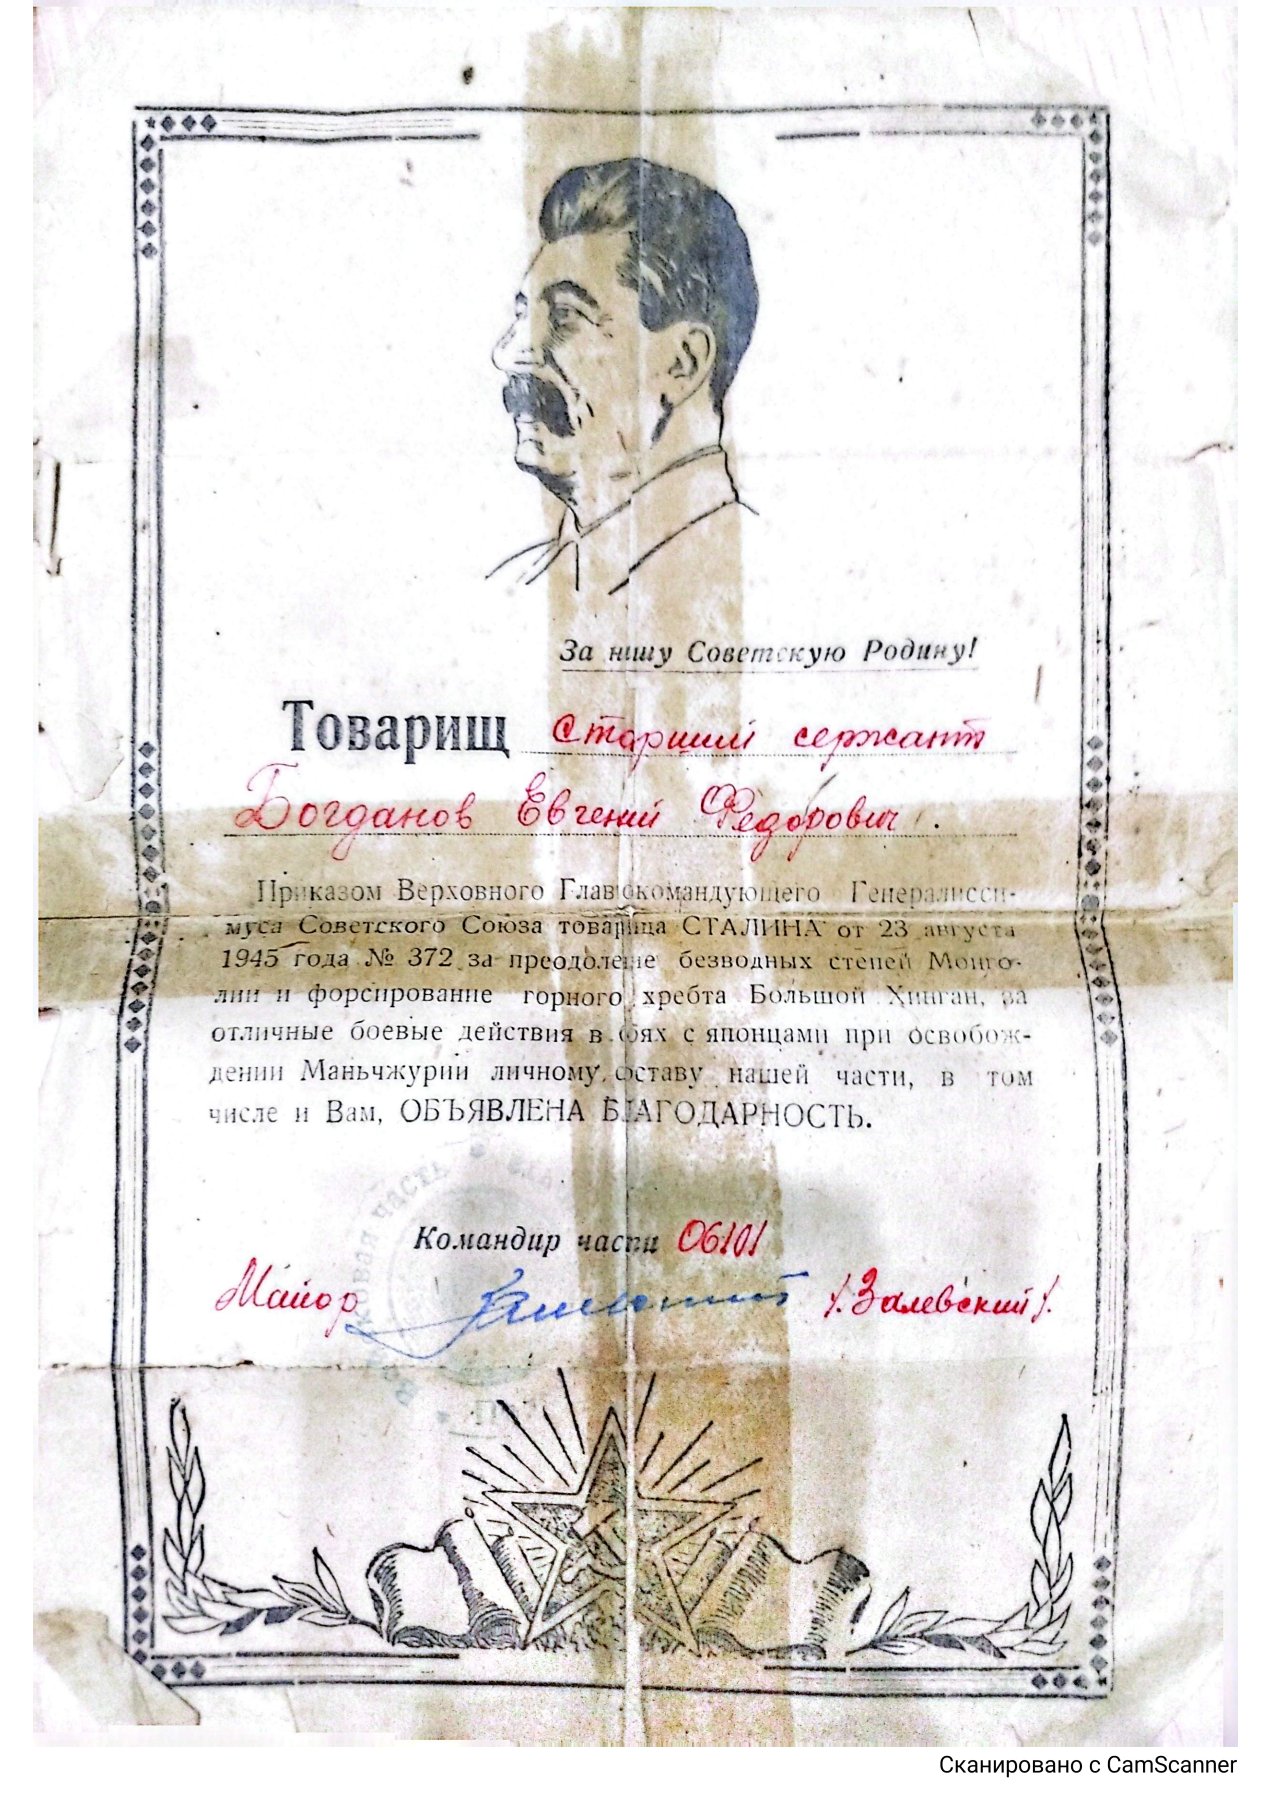 За нашу Советскую Родину!
Товарищ Старший сержант
Богданов Евгений Фёдорович.
Приказом Верховного Главнокомандующего Генералисси-
муса Советского Союза товарища СТАЛИНА от 23 августа
1945 года № 372 за преодоление безводных степей Монго-
лии и форсирование горного хребта Большой Хинган, за
отличные боевые действия в боях с японцами при освобож-
дении Маньчжурии личному составу нашей части, в том
числе и Вам, ОБЪЯВЛЕНА БЛАГОДАРНОСТЬ.
Командир части 06101
Майор /.Залевский/.
Сканировано с CamScanner